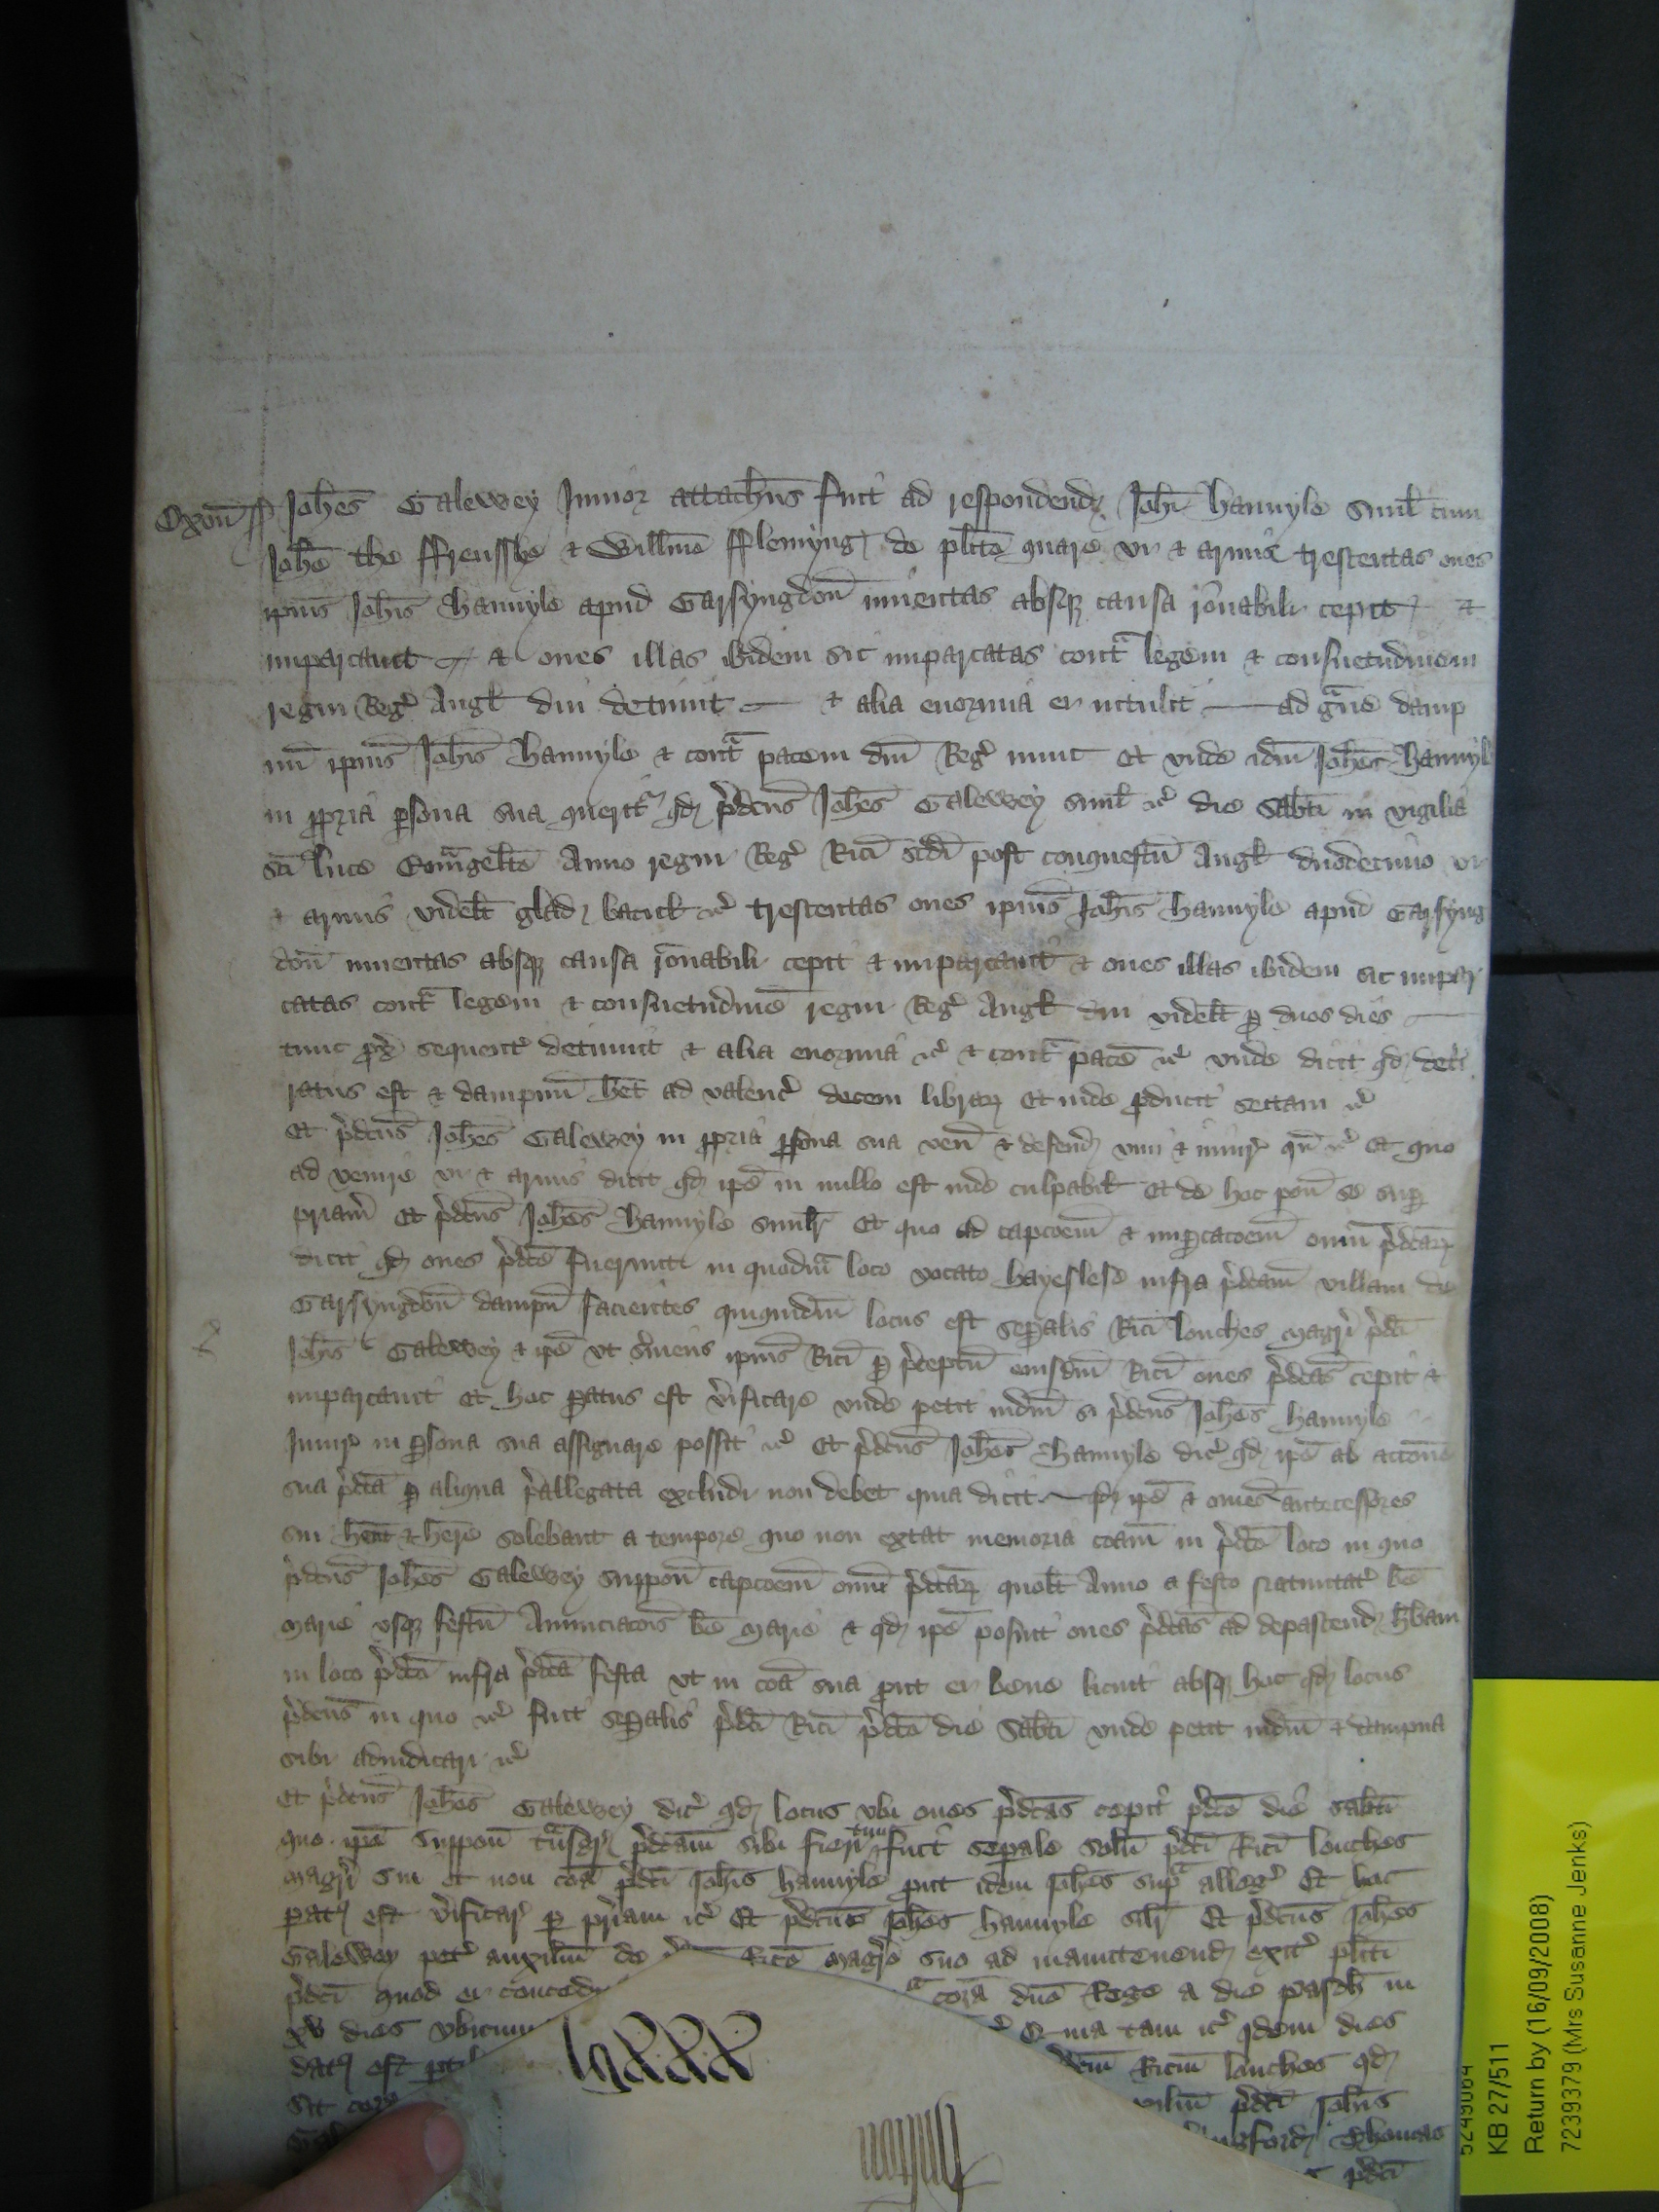 Oxoñ ss Joh̄es Galewey Junior attach̄us fuit ad respondend̄ Joh̄i Hanuyle siml̄ cum
Joh̄e the Frensshe & Will̄mo Flemyng de pl̄ito quare vi & armis trescentas oues
ip̄ius Joh̄is Hanuyle apud Garsyngdon̄ inuentas absq̨ causa rōnabili cepit &
imparcauit & oues illas ibidem sic imparcatas cont̄ legem & consuetudinem
regni Reg̾ Angl̄ diu detinuit & alia enormia ei intulit ad g̾ue damp
nū ip̄ius Joh̄is Hanuyle & cont̄ pacem dn̄i Reg̾ nunc Et vnde idm̄ Joh̄es Hanuyl
in p̄pria p̄sona sua querit̾ qd̄ p̾dcūs Joh̄es Galewey siml̄ &c̾ die Sabb̄ti in vigilia
sc̄i Luce Euāngelīste Anno regni Reg̾ Ric̄i sc̄di post conquestū Angl̄ duodecimo vi
& armis videl̄t glad̄ bacul̄ &c̾ trescentas oues ip̄ius Joh̄is Hanuyle apud Garsyng
don̄ inuentas absq̨ causa rōnabili cepit & imparcauit & oues illas ibidem sic impar
catas cont̄ legem & consuetudinē regni Reg̾ Angl̄ diu videl̄t p̱ duos dies
tunc p̱x̄ sequent̾ detinuit & alia enormia &c̾ & cont̄ pacē &c̾ vnde dicit qd̄ det̾i
ratus est & dampnū h̄et ad valenc̾ decem librar̨ Et inde p̱ducit sectam &c̾
Et p̾dcūs Joh̄es Galewey in p̱pria p̱sona sua ven̄ & defend̄ vim & iniur̾ qn̄ &c̾ Et quo
ad venire vi & armis dicit qd̄ ip̄e in nullo est inde culpabil̄ Et de hoc pon̄ se sup̱
pr̄iam Et p̾dcūs Joh̄es Hanuyle simil̄r Et quo ad capcōem & imp̱cacōem ouiū p̾dc̄ar̨
dicit qd̄ oues p̾dc̄e fuerunt in quodm̄ loco vocato Hayeslese infra p̾dc̄am villam de
Garsyngdon̄ dampn̄ facientes quiquidm̄ locus est sep̱alis Ric̄i Louches mag̾ri p̾dc̄i
Joh̄is Galewey & ip̄e vt s̾uiens ip̄ius Ric̄i p̱ p̾ceptū eiusdm̄ Ric̄i oues p̾dc̄as cepit &
imparcauit Et hoc p̱atus est v̾ificare vnde petit iudm̄ si p̾dcūs Joh̄es Hanuyle
Iniur̾ in p̱sona sua assignare possit &c̾ Et p̾dcūs Joh̄es Hanuyle dic̾ qd̄ ip̄e ab acc̄one
sua p̾dc̄a p̱ aliqua p̾allegata excludi non debet quia dicit qd̄ ip̄e & om̄es antecessores
sui h̄ent & h̄ere solebant a tempore quo non extat memoria cōam in p̾dc̄o loco in quo
p̾dcūs Joh̄es Galewey suppon̄ capcōem ouiū p̾dc̄ar̨ quol̄t Anno a festo Natiuitat̾ b̄e
Marie vsq̨ festū Annunciacōis b̄e Marie & qd̄ ip̄e posuit oues p̾dc̄as ad depascend̄ h̾bam
in loco p̾dc̄o infra p̾dc̄a festa vt in cōa sua p̱ut ei bene licuit absq̨ hoc qd̄ locus
p̾dcūs in quo &c̾ fuit sep̱alis p̾dc̄i Ric̄i p̾dc̄o die Sabb̄ti vnde petit iudm̄ & dampna
sibi adiudicari &c̾
Et p̾dcūs Joh̄es Galewey dic̾ qd̄ locus vbi oues p̾dc̄as cepit p̾dc̄o die Sabb̄ti
quo ip̄e suppon̄ t̾nsgr̾ p̾dc̄am sibi fieri tunc fuit sep̱ale solū p̾dc̄i Ric̄i Louches
mag̾ri sui Et non cōa p̾dc̄i Joh̄is Hanuyle p̱ut idem Joh̄es sup̾ alleg̾ Et hoc
p̱at̨ est v̾ificar̾ p̱ pr̄iam &c̾ Et p̾dcūs Joh̄es Hanuyle sil̄r Et p̾dcūs Joh̄es
Galewey pet̾ auxiliū de Ric̄o mag̾ro suo ad manutenend̄ exit̾ pl̄iti
p̾dc̄i quod ei conced̄ corā dn̄o Rege a die Pasch̄ in
xv dies vbicum̄ Et ita tam &c̾ idem dies
dat̨ est Ric̄m Louches qd̄
sit cor̄ p̾dc̄i Joh̄is
Thomas
p̾dc̄i
lxxxx
Hutton
5249064
KB 27/511
Return by (16/09/2008)
7239379 (Mrs Susanne Jenks)